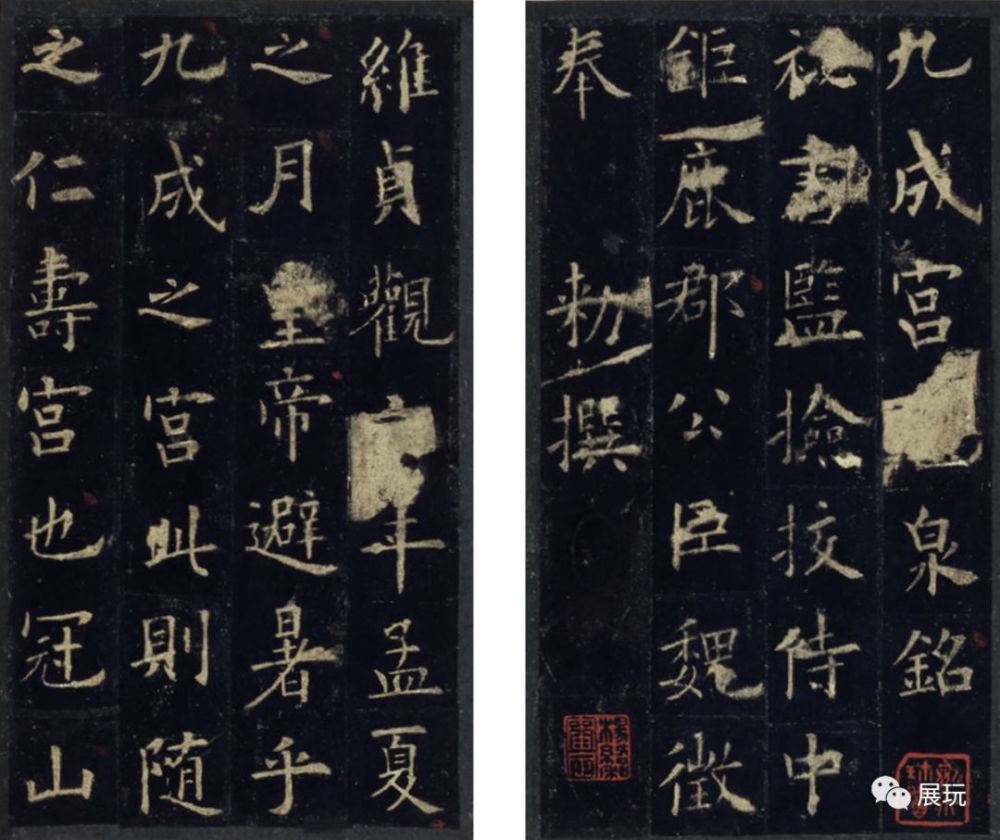 九成宮泉銘
祕書監撿挍侍中
鉅鹿郡公臣魏徵
奉
勑撰
維貞觀年孟夏
之月皇帝避暑乎
九成之宮此則随
之仁壽宮也冠山
展玩